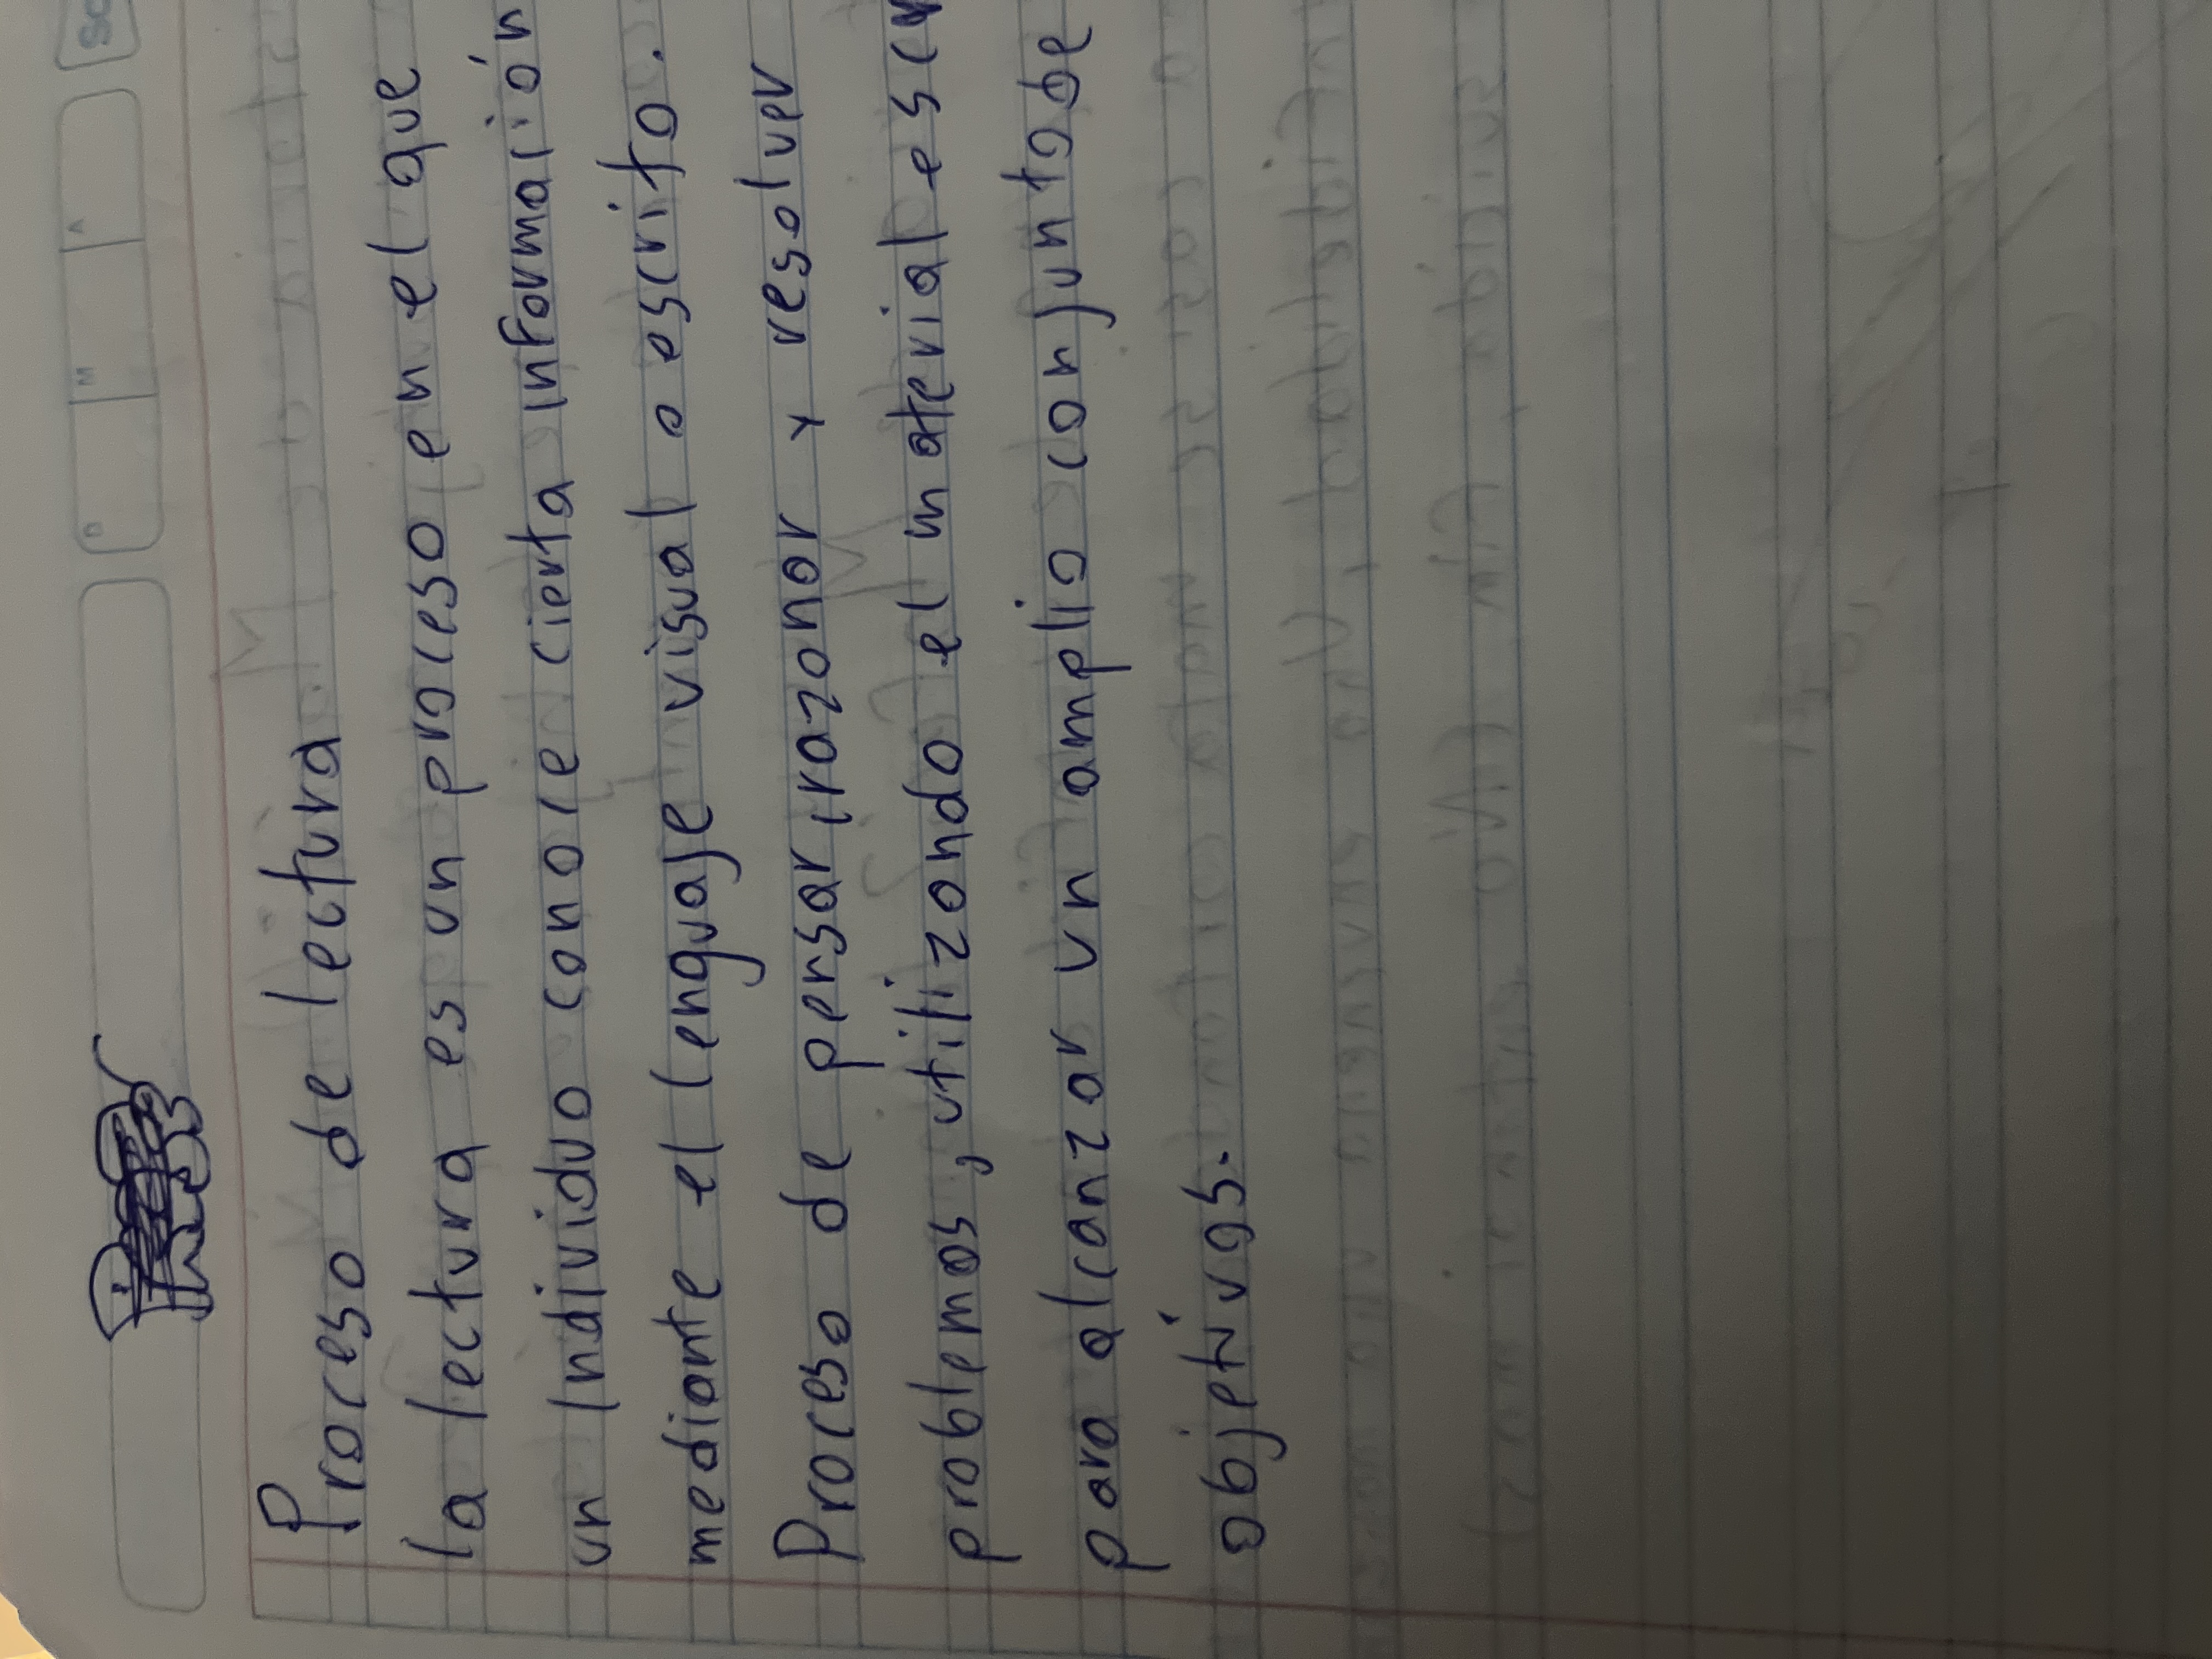 D M A
Proceso de lectura.
la lectura es un proceso, en el que
un Individuo conoce cierta información
mediante el lenguaje visual o escrito.
Proceso de pensar, razonar y resolver
problemas, utilizando el material
para alcanzar un amplio conjunto de
objetivos.